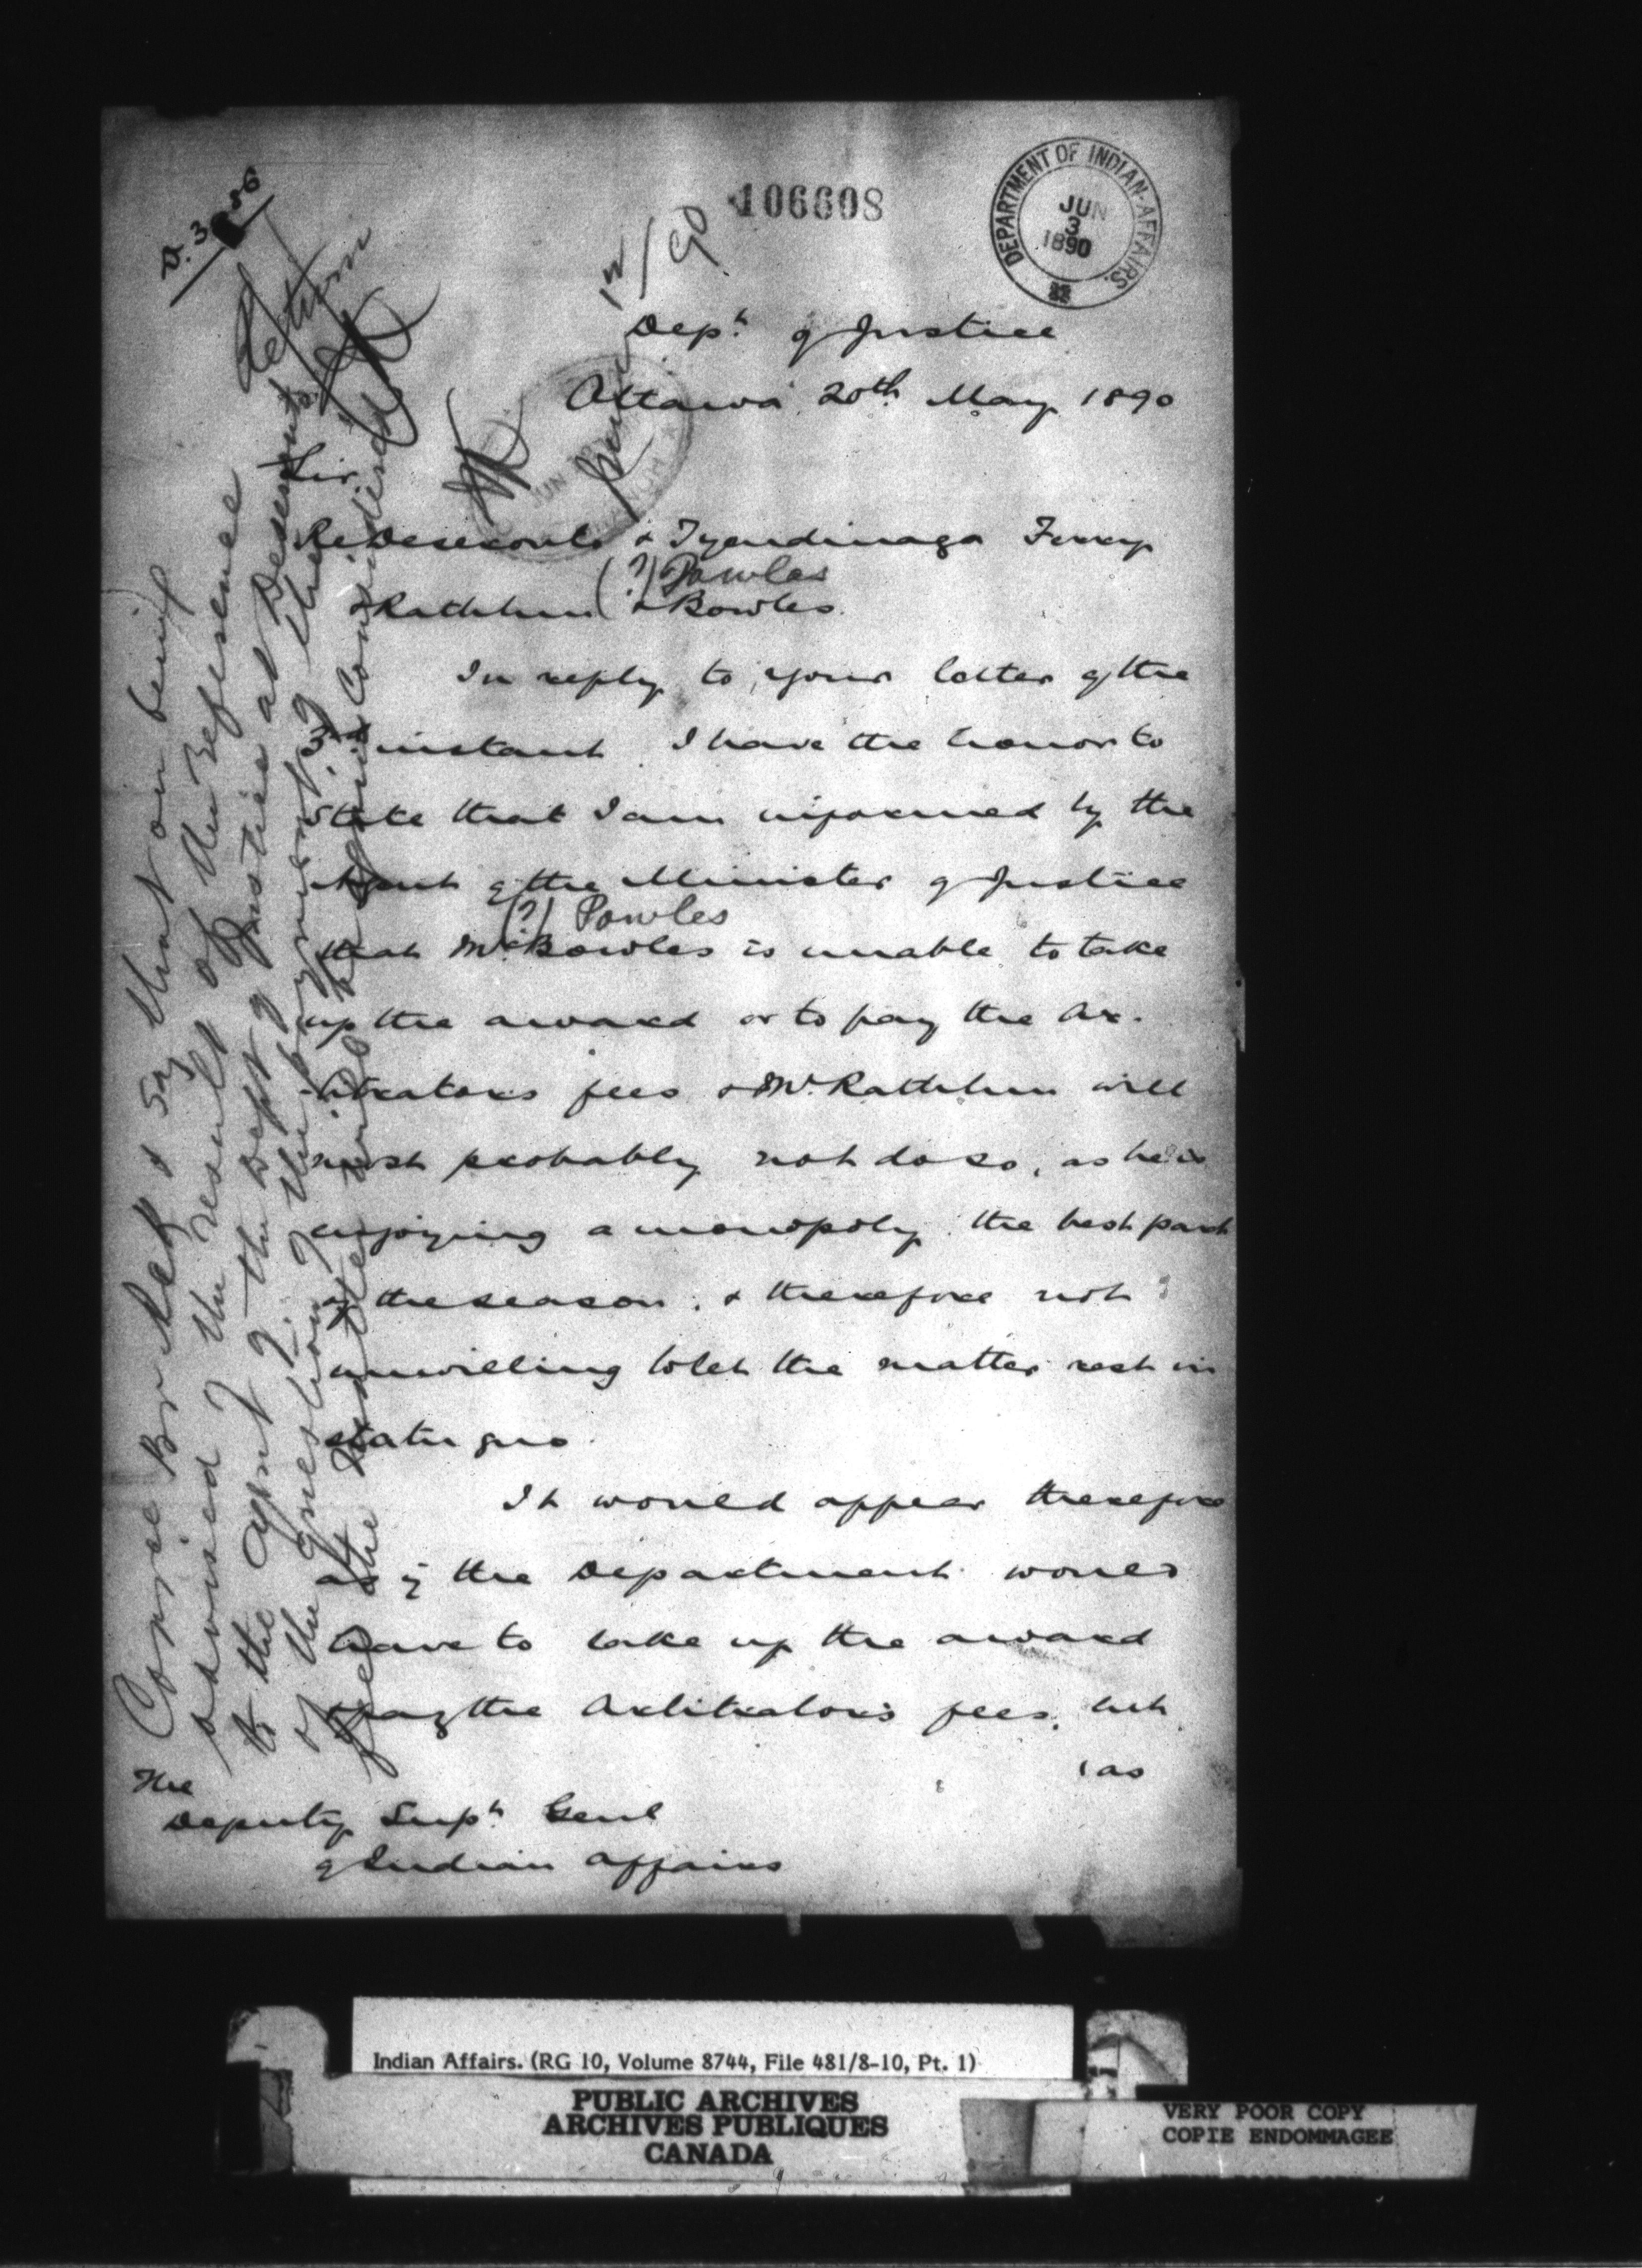 106608
DEPARTMENT OF INDIAN AFFAIRS.
JUN
3
1890
Return
Dept. of Justice
Ottawa 20th May 1890
Sir,
Re Deseronto & Tyendinaga Ferry
(?) Powles
& Rathbun & Bowles.
In reply to your letter of the
3rd instant I have the honor to
state that I am informed by the
Agent of the Minister of Justice
(?) Powles
that Mr. Bowles is unable to take
up the award or to pay the Ar-
bitrators fees & Mr. Rathbun will
most probably not do so, as he is
enjoying a monopoly the best part
of the season, & therefore not
unwilling to let the matter rest in
statu quo.
It would appear therefore
as if the Department would
have to take up the award
& pay the Arbitrators fees, but
(as
The
Deputy Supt Genl
of Indian Affairs
& say that on being
advised of the result of the Reference
to the agent of the Dept of Justice at Deseronto
of the question of the payment of the
fees the matter will be considered
Indian Affairs. (RG 10, Volume 8744, File 481/8-10, Pt. 1)
PUBLIC ARCHIVES
ARCHIVES PUBLIQUES
CANADA
VERY POOR COPY
COPIE ENDOMMAGEE